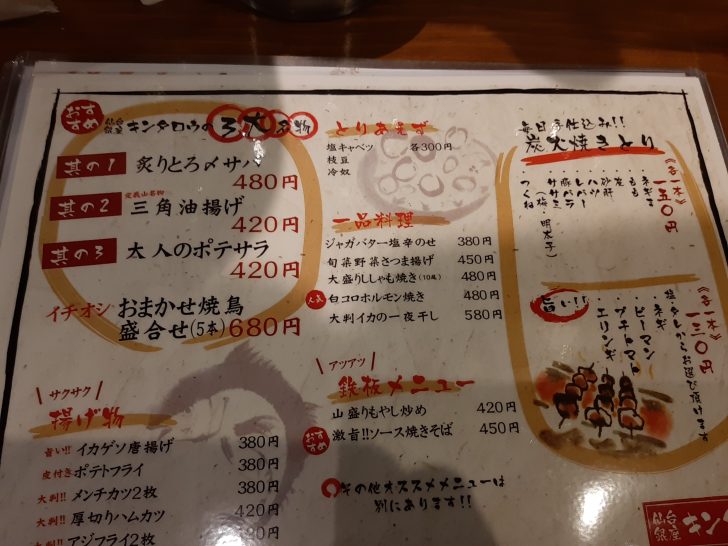 おすすめ
仙台銀座 キンタロウの 3大名物
其の1 炙りとろ〆サバ
480円
定義山名物
其の2 三角油揚げ
420円
其の3 大人のポテサラ
420円
イチオシ おまかせ焼鳥
盛合せ(5本)680円
サクサク
揚げ物
旨い!! イカゲソ唐揚げ 380円
皮付き ポテトフライ 380円
大判!! メンチカツ2枚 380円
大判!! 厚切りハムカツ 420円
大判!! アジフライ2枚 380円
とりあえず
塩キャベツ 各300円
枝豆
冷奴
一品料理
ジャガバター塩辛のせ 380円
旬菜野菜さつま揚げ 450円
大盛りししゃも焼き(10尾) 480円
人気 白コロホルモン焼き 480円
大判イカの一夜干し 580円
アツアツ
鉄板メニュー
山盛りもやし炒め 420円
おすすめ 激旨!!ソース焼きそば 450円
その他オススメメニューは
別にあります!!
毎日手仕込み!!
炭火焼きとり
《各一本》
一五〇円
ネギま
もも
砂肝
ハツ
レバー
豚バラ
ササミ
(梅・明太子)
つくね
《各一本》
一三〇円
旨い!!
塩・タレからお選び頂けます
ネギ
ピーマン
プチトマト
エリンギ
仙台銀座 キン